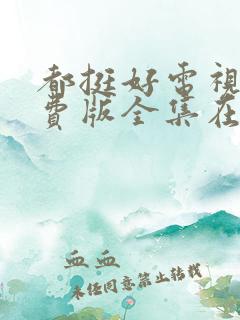 都挺好電視
費版全集在
血血
未经同意禁止转载